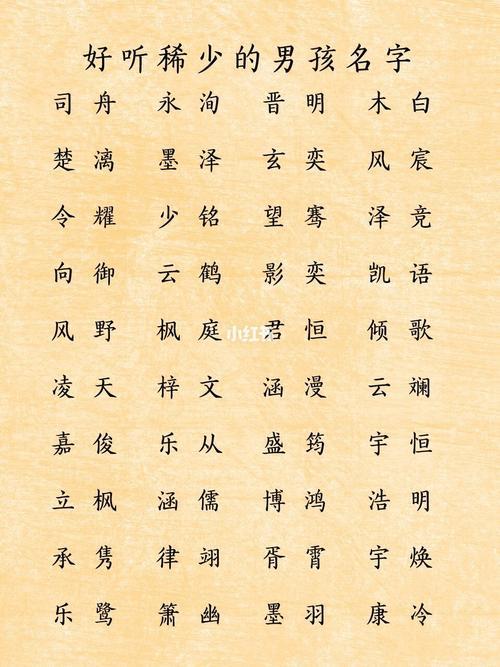 好听稀少的男孩名字
司舟 永洵 晋明 木白
楚漓 墨泽 玄奕 风宸
令耀 少铭 望骞 泽竞
向御 云鹤 影奕 凯语
风野 枫庭 君恒 倾歌
小红书
凌天 梓文 涵漫 云斓
嘉俊 乐从 盛筠 宇恒
立枫 涵儒 博鸿 浩明
承隽 律翊 胥霄 宇焕
乐鹭 箫幽 墨羽 康冷